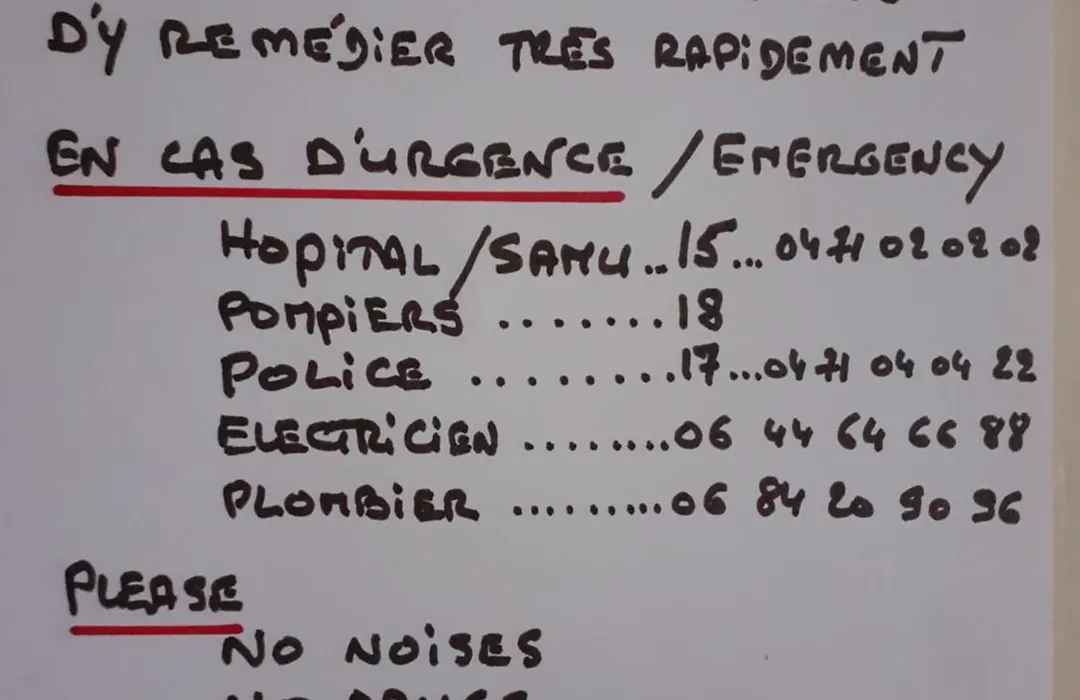 D'Y REMÉDIER TRÉS RAPIDEMENT
EN CAS D'URGENCE / EMERGENCY
HOPITAL / SAMU .. 15 ... 04 71 02 02 02
POMPIERS ........ 18
POLICE ......... 17 ... 04 71 04 04 22
ELECTRICIEN ........ 06 44 64 66 88
PLOMBIER ......... 06 84 20 90 96
PLEASE
NO NOISES